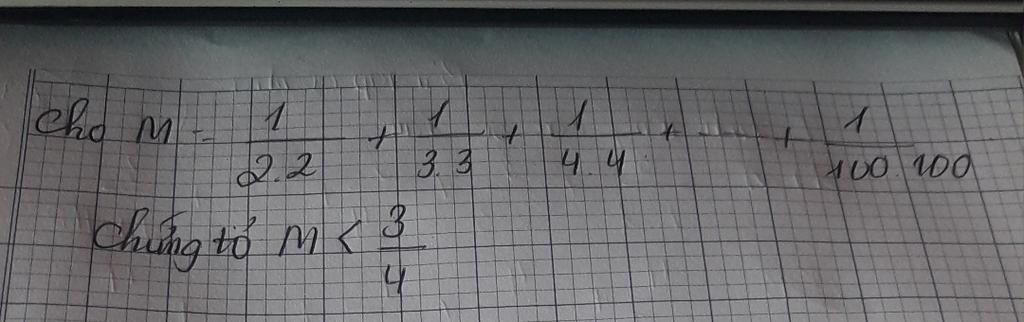 Cho M = 1/2.2 + 1/3.3 + 1/4.4 + ... + 1/100.100
Chứng tỏ M < 3/4